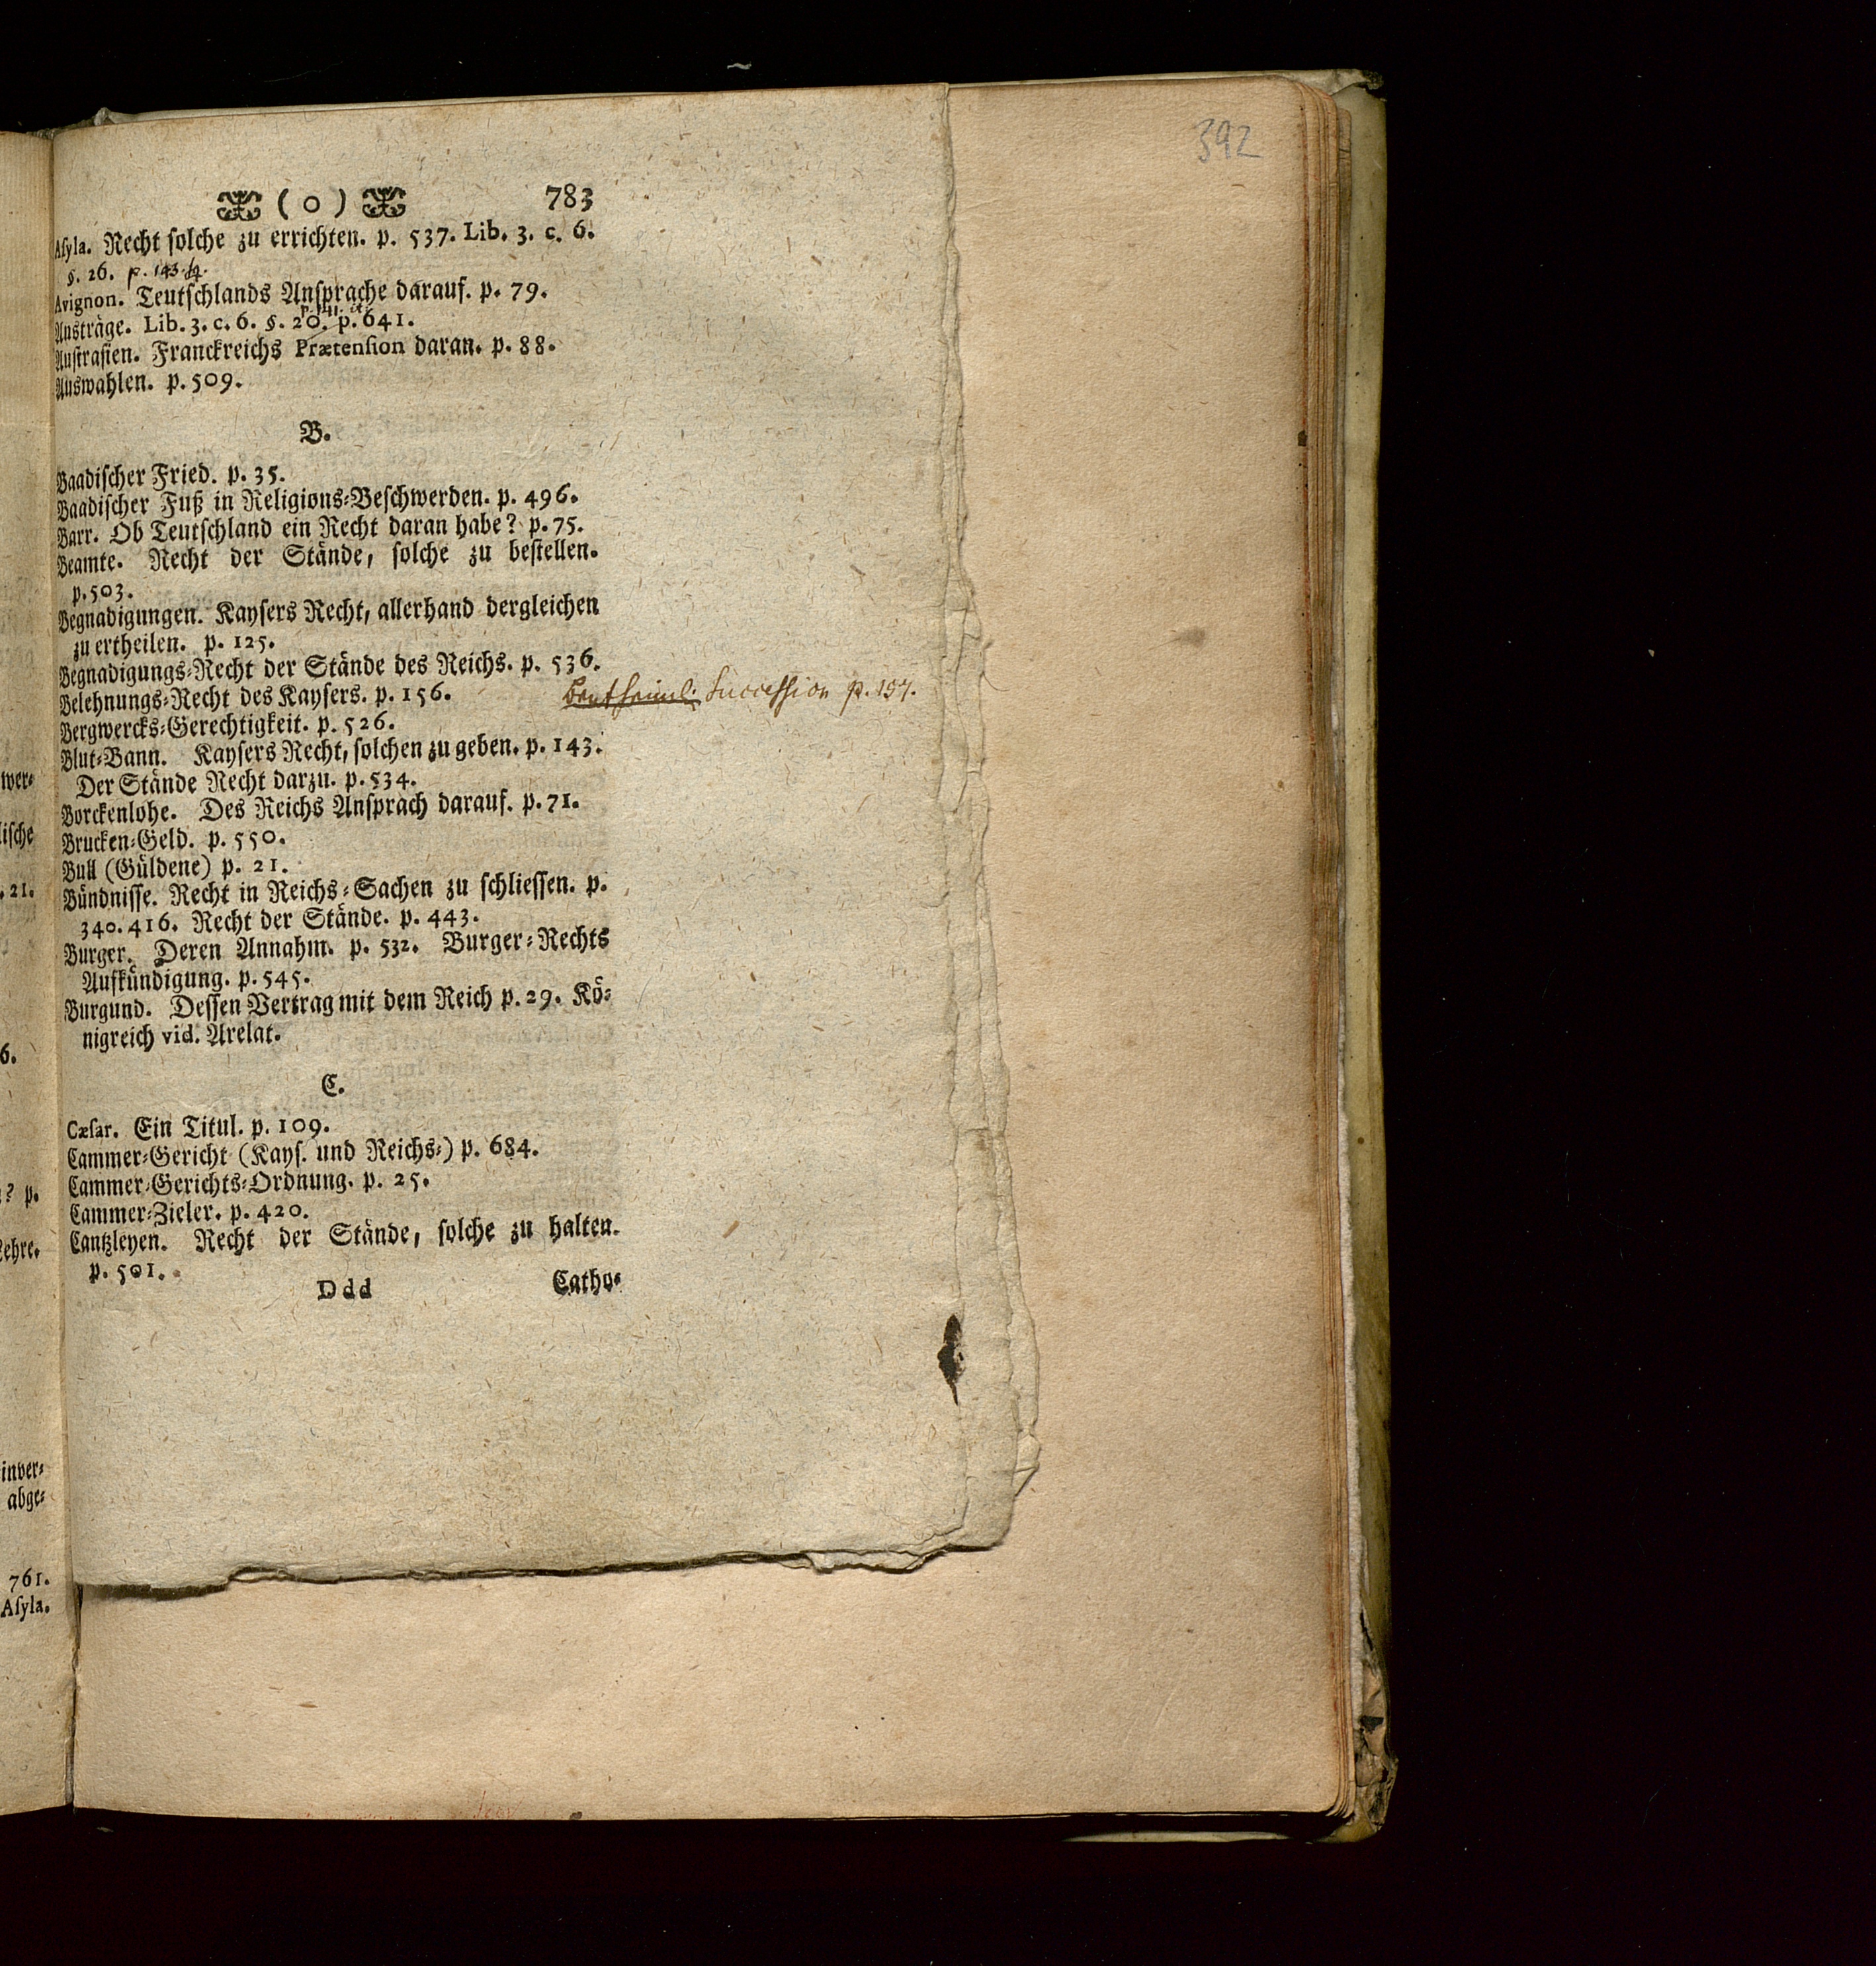 392
( o ) 783
Aſyla. Recht ſolche zu errichten. p. 537. Lib. 3. c. 6.
§. 26. p. 143.
Avignon. Teutſchlands Anſprache darauf. p. 79.
Austräge. Lib. 3. c. 6. §. 20. p. 641.
Auſtraſien. Franckreichs Prætenſion daran. p. 88.
Auswahlen. p. 509.
B.
Baadiſcher Fried. p. 35.
Baadiſcher Fuß in Religions-Beſchwerden. p. 496.
Barr. Ob Teutſchland ein Recht daran habe? p. 75.
Beamte. Recht der Stände, ſolche zu beſtellen.
p. 503.
Begnadigungen. Kayſers Recht, allerhand dergleichen
zu ertheilen. p. 125.
Begnadigungs-Recht der Stände des Reichs. p. 536.
Belehnungs-Recht des Kayſers. p. 156.
Bentheiml. Succession p. 157.
Bergwercks-Gerechtigkeit. p. 526.
Blut-Bann. Kayſers Recht, ſolchen zu geben. p. 143.
Der Stände Recht darzu. p. 534.
Borckenlohe. Des Reichs Anſprach darauf. p. 71.
Brucken-Geld. p. 550.
Bull (Güldene) p. 21.
Bündniſſe. Recht in Reichs-Sachen zu ſchlieſſen. p.
340. 416. Recht der Stände. p. 443.
Burger. Deren Annahm. p. 532. Burger-Rechts
Aufkündigung. p. 545.
Burgund. Deſſen Vertrag mit dem Reich p. 29. Kö-
nigreich vid. Arelat.
C.
Cæſar. Ein Titul. p. 109.
Cammer-Gericht (Kayſ. und Reichs-) p. 684.
Cammer-Gerichts-Ordnung. p. 25.
Cammer-Zieler. p. 420.
Cantzleyen. Recht der Stände, ſolche zu halten.
p. 501.
Ddd Catho-
wer-
liſche
. 21.
6.
? p.
Lehre.
inver-
abge-
761.
Aſyla.